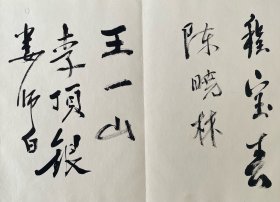 程宝春
陈晓林
王一山
李顶银
娄师白